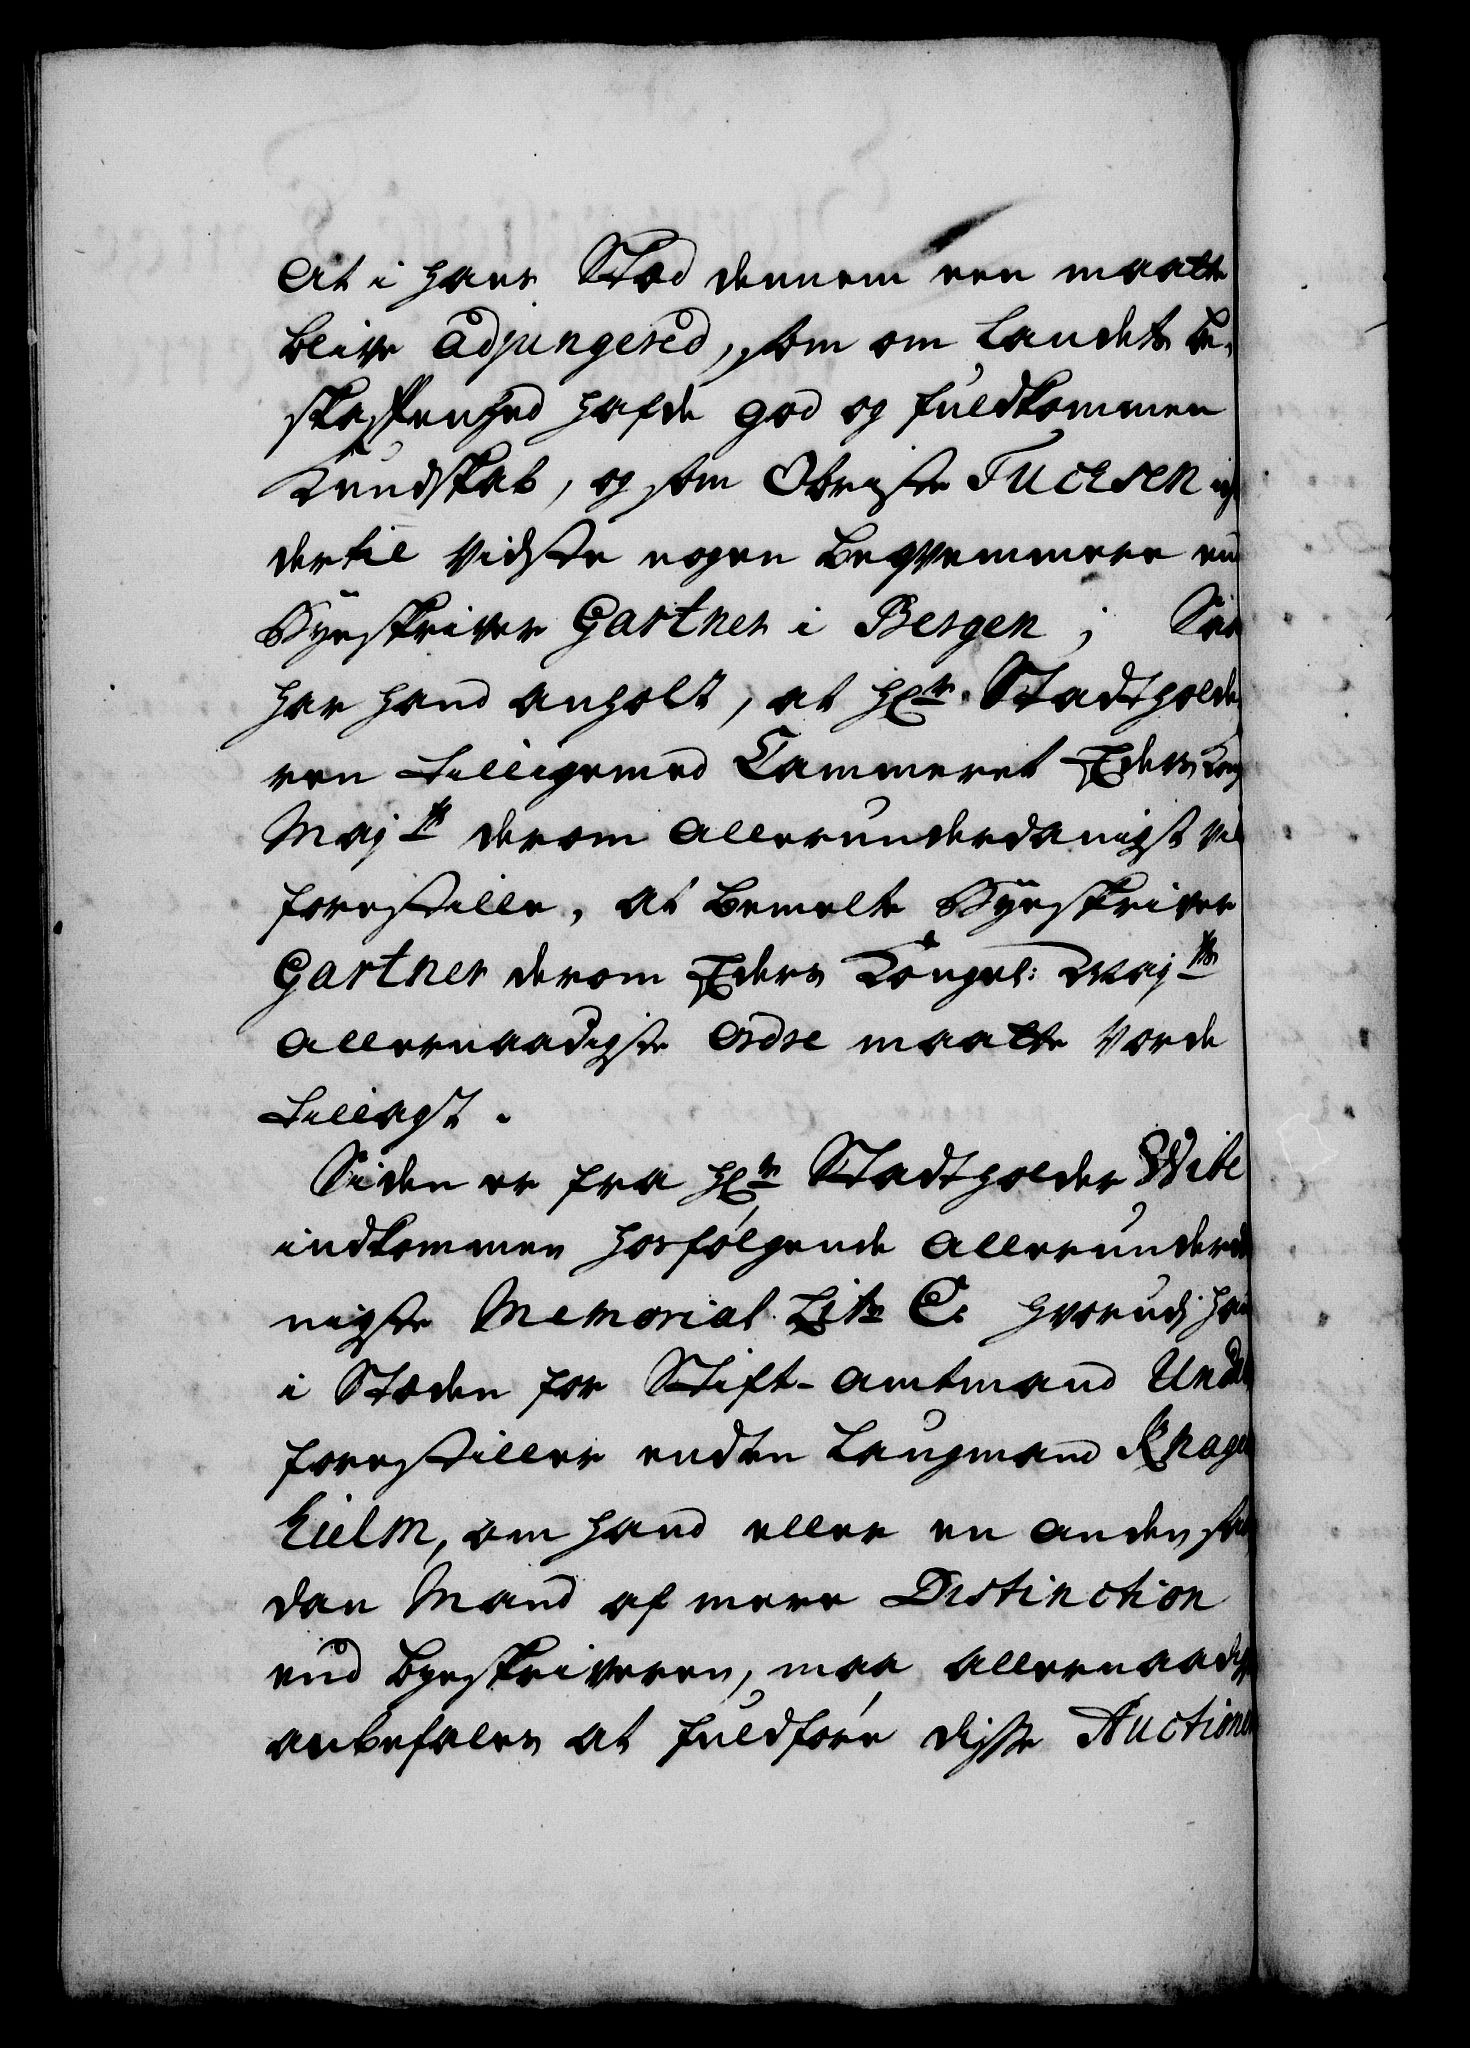 At i hans Stæd dennem een maatte
blive adjungered, som om Landets be-
skaffenhed hafde god og fuldkommen
Kundskab, og som Obriste Tuchsen ig
dertil vidste nogen beqvemmere en
Byeskriver Gartner i Bergen;
har hand anholt, at Hr. Stadtholde
ren tilligemed Cammeret Eders Kong
Majts derom allerunderdanigst vel
forestille, at bemelte Byeskriver
Gartner derom Eders Kongel: Majts
allernaadigste Ordre maatte vorde
tillagt.
Siden er fra Hr. Stadtholder Wibe
indkommen hosfølgende allerunderda
nigste Memorial Litr C. hvorudj han
i Stæden for Stift-amtmand Undal
forestiller endten Laugmand Knagen
hielm, om hand eller en anden saa
dan Mand af meere Distinction
end byeskriveren, maa allernaadigst
anbefales at fuldføre disse Auctioner